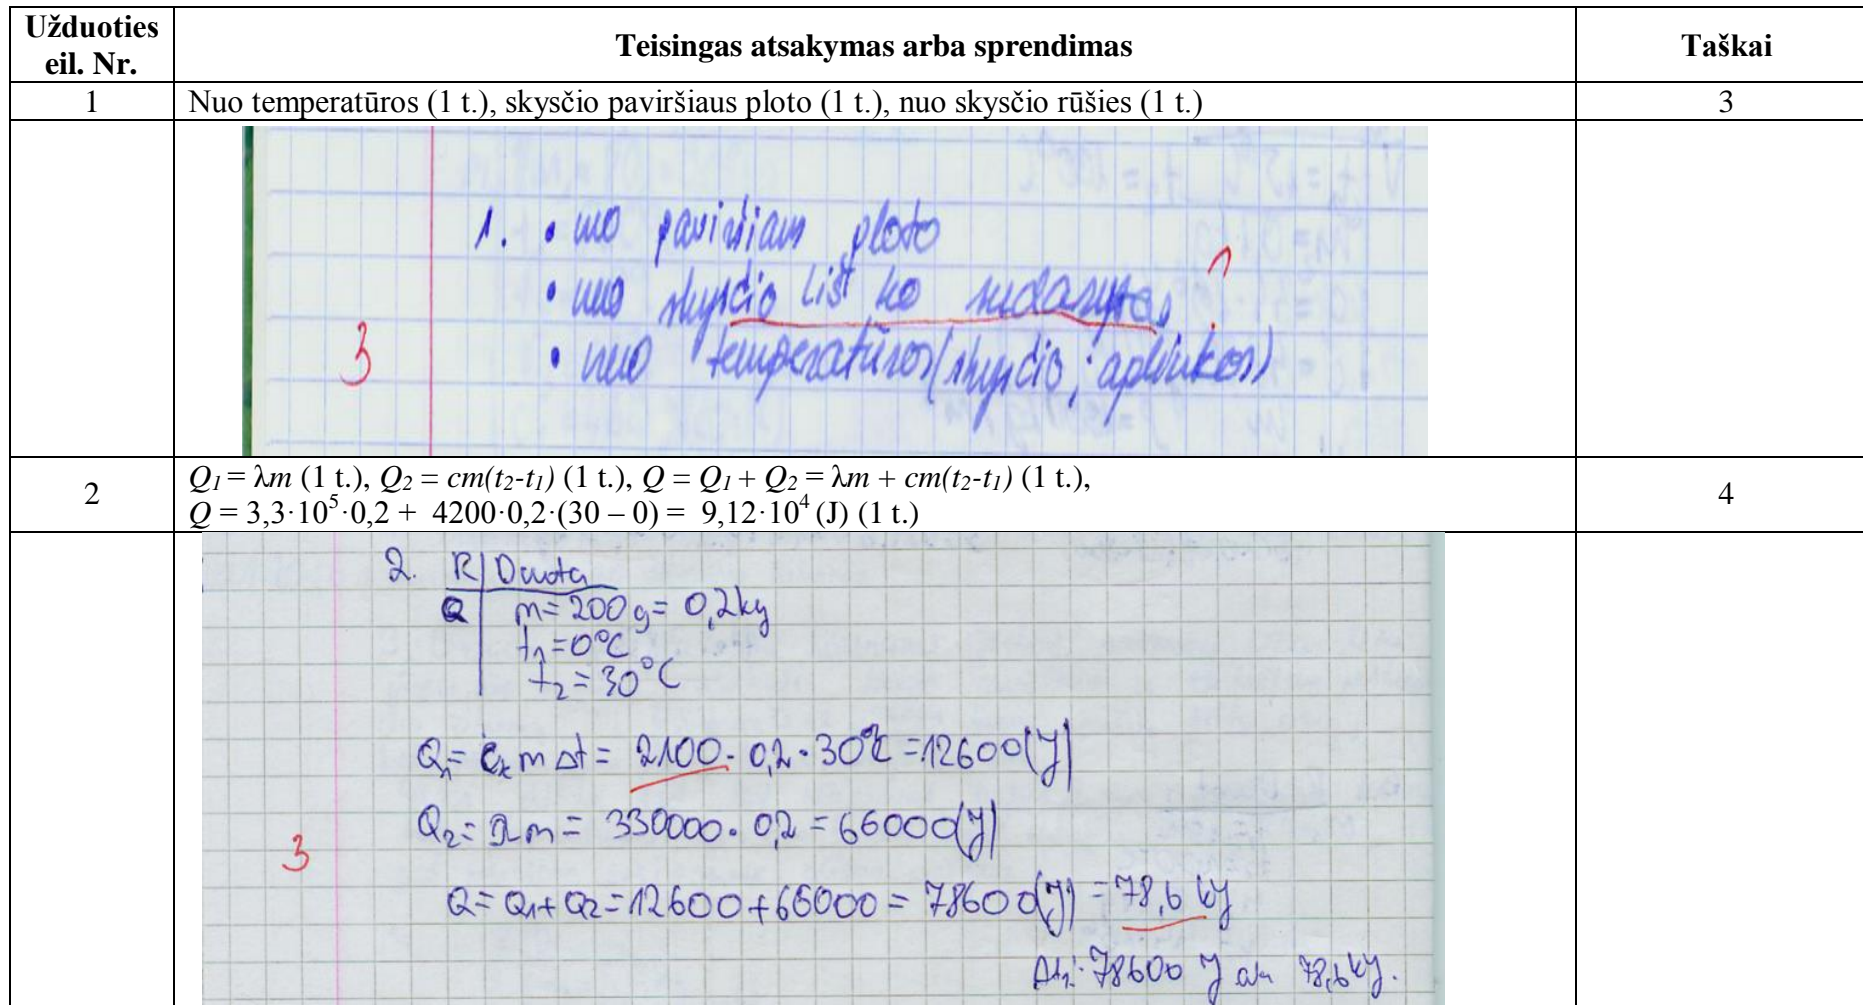 Užduoties eil. Nr.
Teisingas atsakymas arba sprendimas
Taškai
1
Nuo temperatūros (1 t.), skysčio paviršiaus ploto (1 t.), nuo skysčio rūšies (1 t.)
3
1. • nuo paviršiaus ploto
• nuo skysčio (iš ko sudarytas
?
• nuo temperatūros (skysčio; aplinkos)
3
2
Q₁ = λm (1 t.), Q₂ = cm(t₂-t₁) (1 t.), Q = Q₁ + Q₂ = λm + cm(t₂-t₁) (1 t.),
Q = 3,3·10⁵·0,2 + 4200·0,2·(30 – 0) = 9,12·10⁴ (J) (1 t.)
4
2. R | Duota
Q | m = 200 g = 0,2 kg
t₁ = 0°C
t₂ = 30°C
Q₁ = m Δt = 2100 · 0,2 · 30°C = 12600 (J)
Q₂ = λm = 330000 · 0,2 = 66000 (J)
3
Q = Q₁ + Q₂ = 12600 + 66000 = 78600 (J) = 78,6 kJ
Ats: 78600 J ar 78,6 kJ.